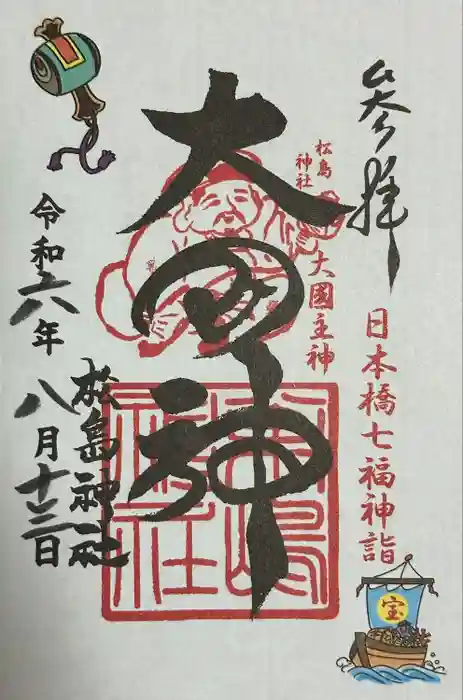 参拝
日本橋七福神詣
宝
松島
神社
大國主神
大国神
松島
神社
松島神社
令和六年
八月十三日